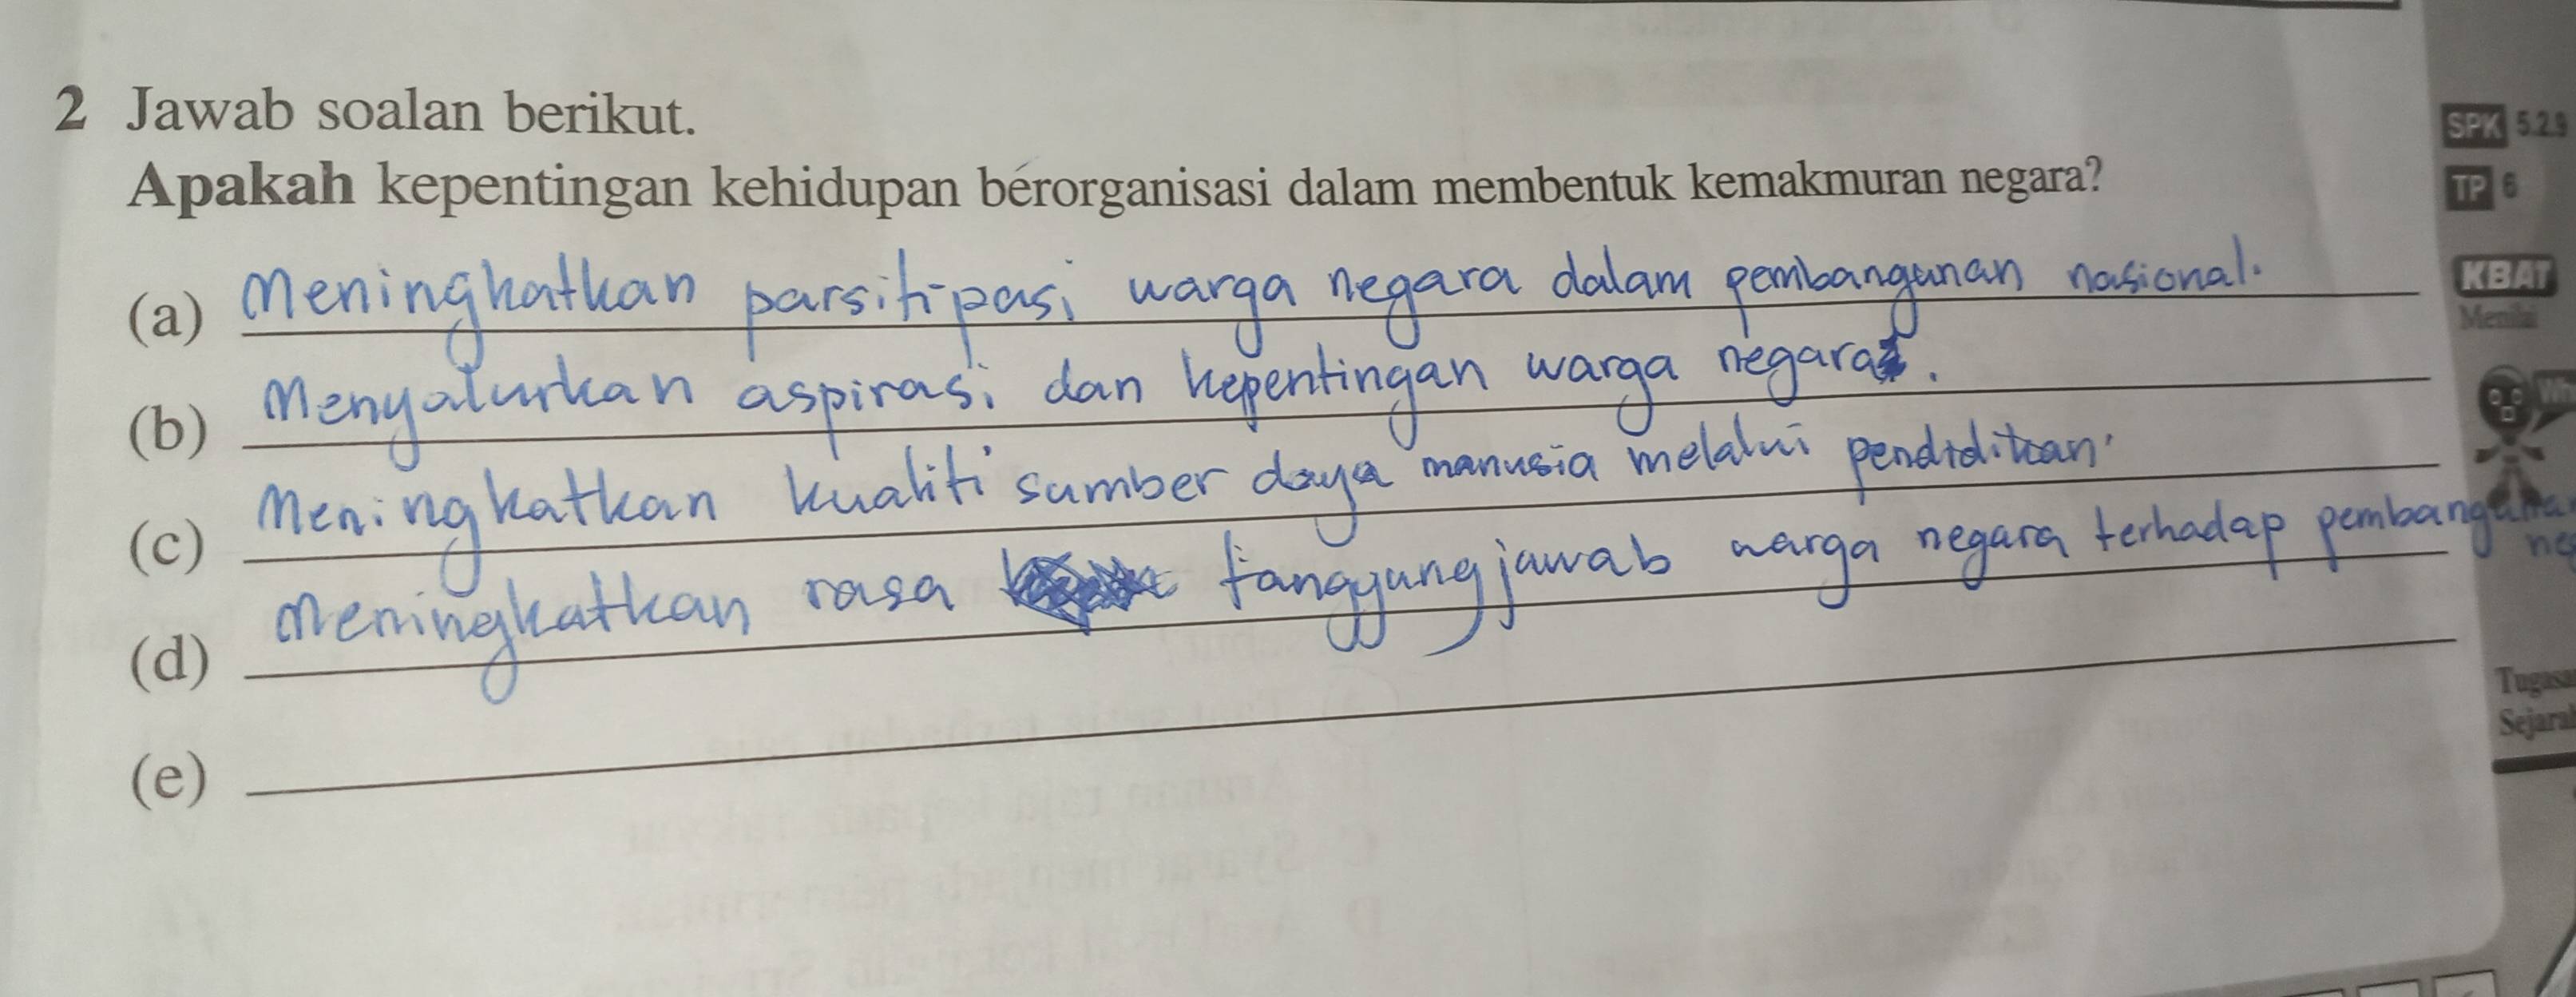 2 Jawab soalan berikut.
Apakah kepentingan kehidupan berorganisasi dalam membentuk kemakmuran negara?
(a) Meningkatkan parsitipasi warga negara dalam pembangunan nasional.
(b) Menyalurkan aspirasi dan kepentingan warga negara.
(c) Meningkatkan kualiti sumber daya manusia melalui pendidikan.
(d) Meningkatkan rasa tanggungjawab warga negara terhadap
(e)
SPK 5.2.
TP 6
KBAT
Menilai
Sejarah